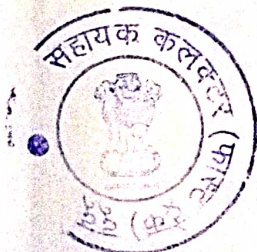 सहायक कलक्टर (फास्ट ट्रेक)